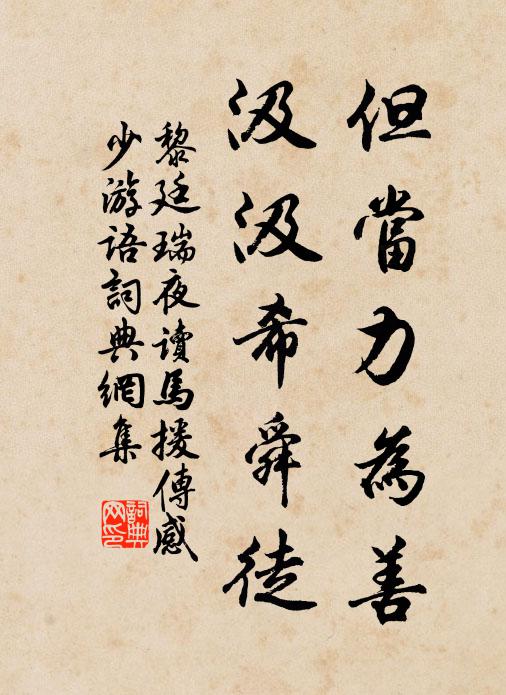 但當力為善
汲汲希舜徒
黎廷瑞夜讀馬援傳感
少游語詞典網集
詞典
网印